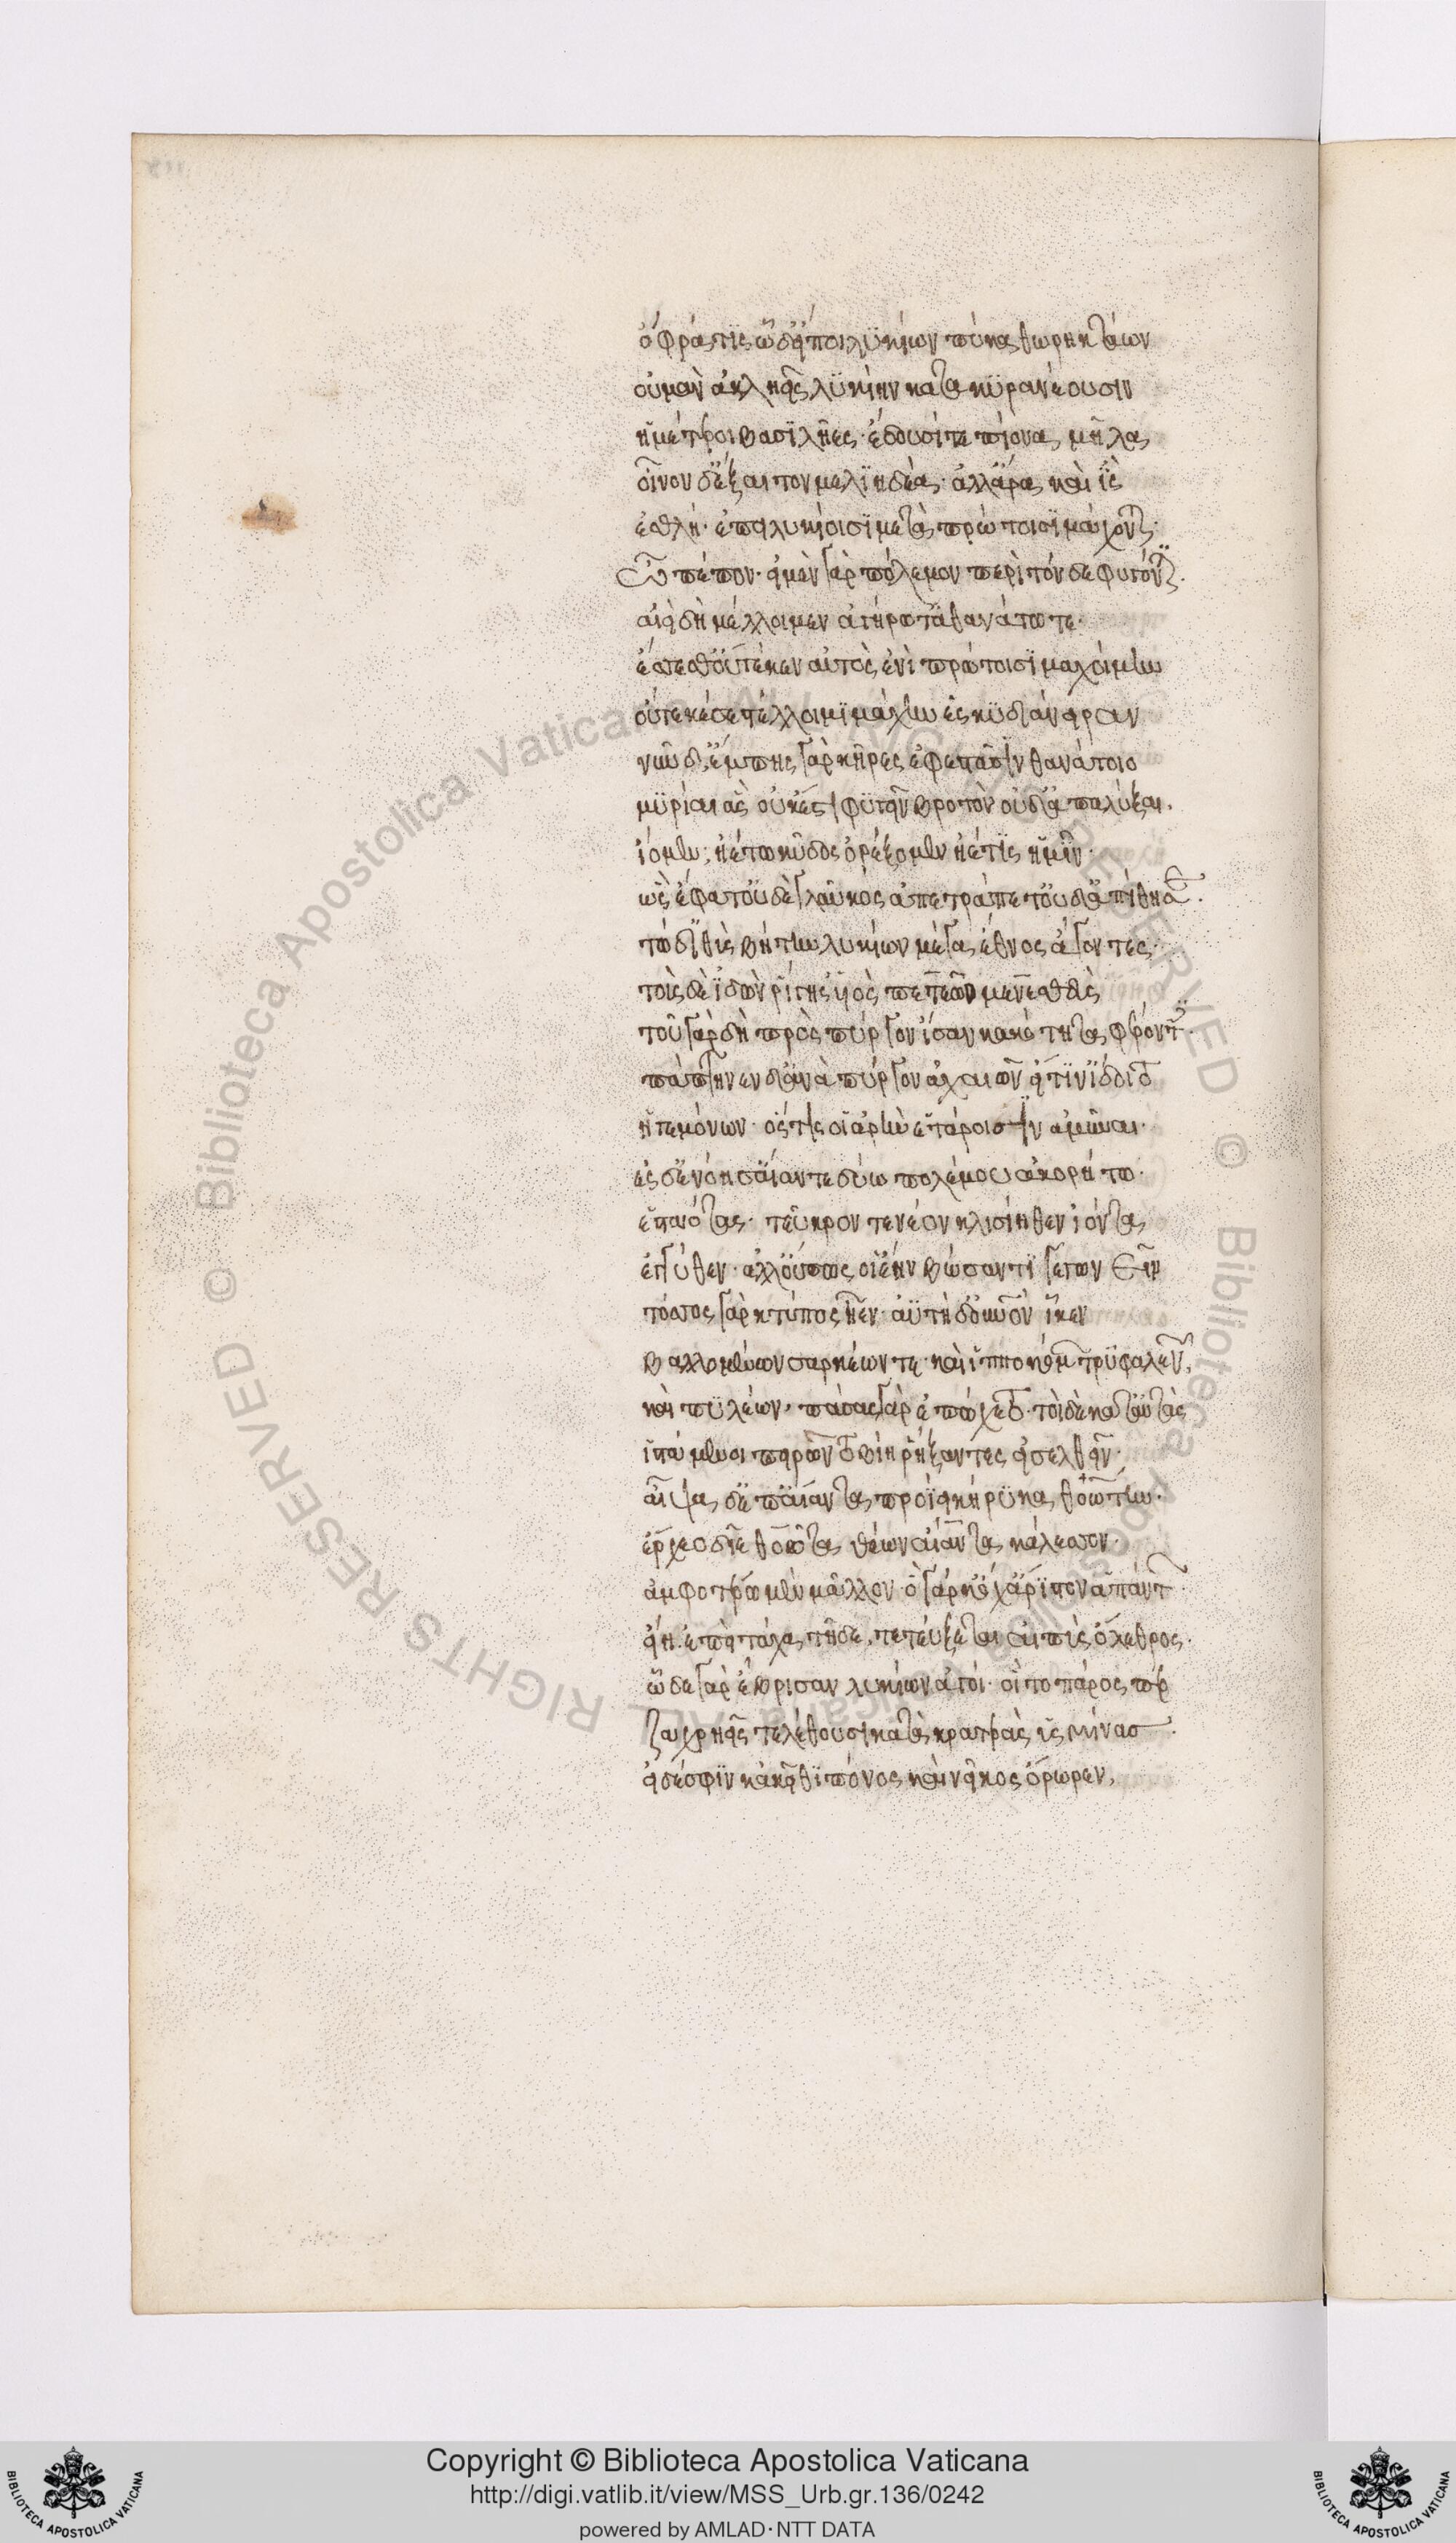 ὄφρά τις ὧδ' εἴποι λυκίων πύκα θωρηκτάων
οὐ μὰν ἀκληεῖς λυκίην κατακυρανέουσιν
ἡμέτεροι βασιλῆες· ἔδουσί τε πίονα μῆλα
οἶνον δ' ἔξαιτον μελιηδέα· ἀλλ' ἄρα καὶ ἲς
ἐσθλή· ἐπεὶ λυκίοισι μετὰ πρώτοισι μάχονται·
Ὦ πέπον· εἰ μὲν γὰρ πόλεμον περὶ τόνδε φυγόντες·
αἰεὶ δὴ μέλλοιμεν ἀγήρω τ' ἀθανάτω τε·
ἔσσεσθ' οὔτέ κεν αὐτὸς ἐνὶ πρώτοισι μαχοίμην
οὔτε κέ σε στέλλοιμι μάχην ἐς κυδιάνειραν
νῦν δ' ἔμπης γὰρ κῆρες ἐφεστᾶσιν θανάτοιο
μυρίαι ἃς οὐκ ἔστι φυγεῖν βροτὸν οὐδ' ὑπαλύξαι.
ἴομεν· ἠέ τω κῦδος ὀρέξομεν ἠέ τις ἡμῖν·
ὣς ἔφατ' οὐδὲ γλαῦκος ἀπετράπετ' οὐδ' ἀπίθησε.
τὼ δ' ἰθὺς βήτην λυκίων μέγα ἔθνος ἄγοντες·
τοὺς δὲ ἰδὼν ῥίγησ' υἱὸς πετεῶο μενεσθεὺς
τοῦ γὰρ δὴ πρὸς πύργον ἴσαν κακότητα φέροντες·
πάπτηνεν δ' ἀνὰ πύργον ἀχαιῶν εἴ τιν' ἴδοιτο
ἡγεμόνων· ὅς τις οἱ ἀρὴν ἑτάροισιν ἀμύναι·
ἐς δ' ἐνόησ' αἴαντε δύω πολέμου ἀκορήτω·
ἑσταότας· τεῦκρόν τε νέον κλισίηθεν ἰόντα
ἐγγύθεν· ἀλλ' οὔπως οἱ ἔην βώσαντι γεγωνεῖν
τόσσος γὰρ κτύπος ἦεν· ἀυτὴ δ' οὐρανὸν ἷκεν
βαλλομένων σακέων τε· καὶ ἱπποκόμων τρυφαλειῶν,
καὶ πυλέων· πάσας γὰρ ἐπώχετο· τοὶ δὲ κατ' αὐτὰς
ἱστάμενοι πειρῶντο βίῃ ῥήξαντες εἰσελθεῖν·
αἶψα δ' ἐπ' αἴαντα προΐει κήρυκα θοώτην·
ἔρχεο δῖε θοῶτα θέων αἴαντα κάλεσσον·
ἀμφοτέρω μὲν μᾶλλον· ὃ γάρ κ' ὄχ' ἄριστον ἁπάντων
εἴη· ἐπεὶ τάχα τῇδε, τετεύξεται αἰπὺς ὄλεθρος·
ὧδε γὰρ ἔβρισαν λυκίων ἀγοί· οἳ τὸ πάρος περ
ζαχρηεῖς τελέθουσι κατὰ κρατερὰς ὑσμίνας·
εἰ δέ σφιν κἀκεῖθι πόνος καὶ νεῖκος ὄρωρεν,
Copyright © Biblioteca Apostolica Vaticana
http://digi.vatlib.it/view/MSS_Urb.gr.136/0242
powered by AMLAD·NTT DATA